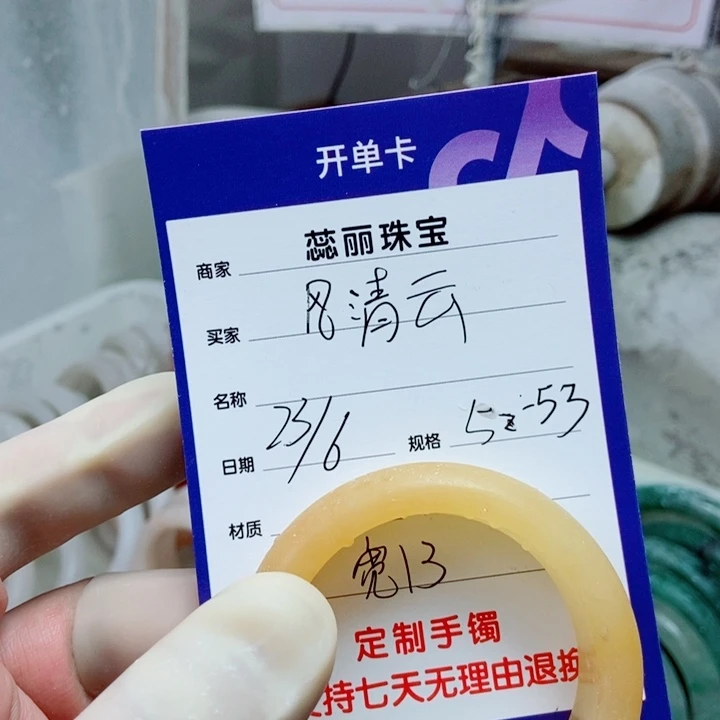 开单卡
商家 蕊丽珠宝
买家 风清云
名称
日期 23/6 规格 52-53
材质
宽13
定制手镯
支持七天无理由退换